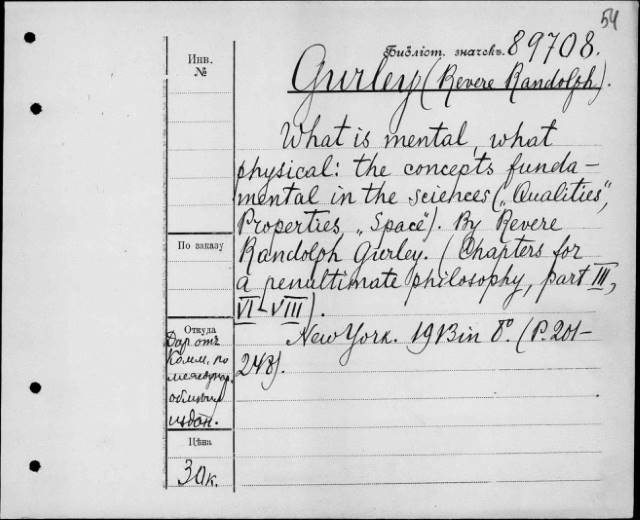 54
Библіот. значекъ 89708.
Gurley (Revere Randolph).
What is mental, what
physical: the concepts funda-
mental in the sciences („Qualities",
Properties, „Space"). By Revere
Randolph Gurley. (Chapters for
a penultimate philosophy, part III,
VI-VIII).
New York. 1913 in 8°. (P. 201-
248).
Инв.
№
По заказу
Откуда
Даръ отъ
Комм. по
обмѣну
издан.
Цѣна
30 к.